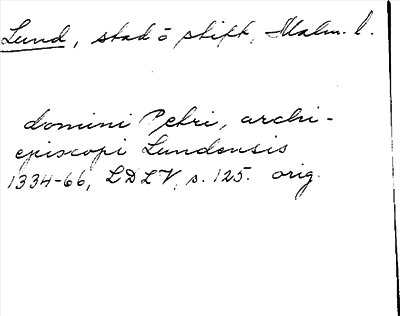 Lund, stad o stift, Malm. l.
domini Petri, archi-
episcopi Lundensis
1334-66, LDLV, s. 125. orig.